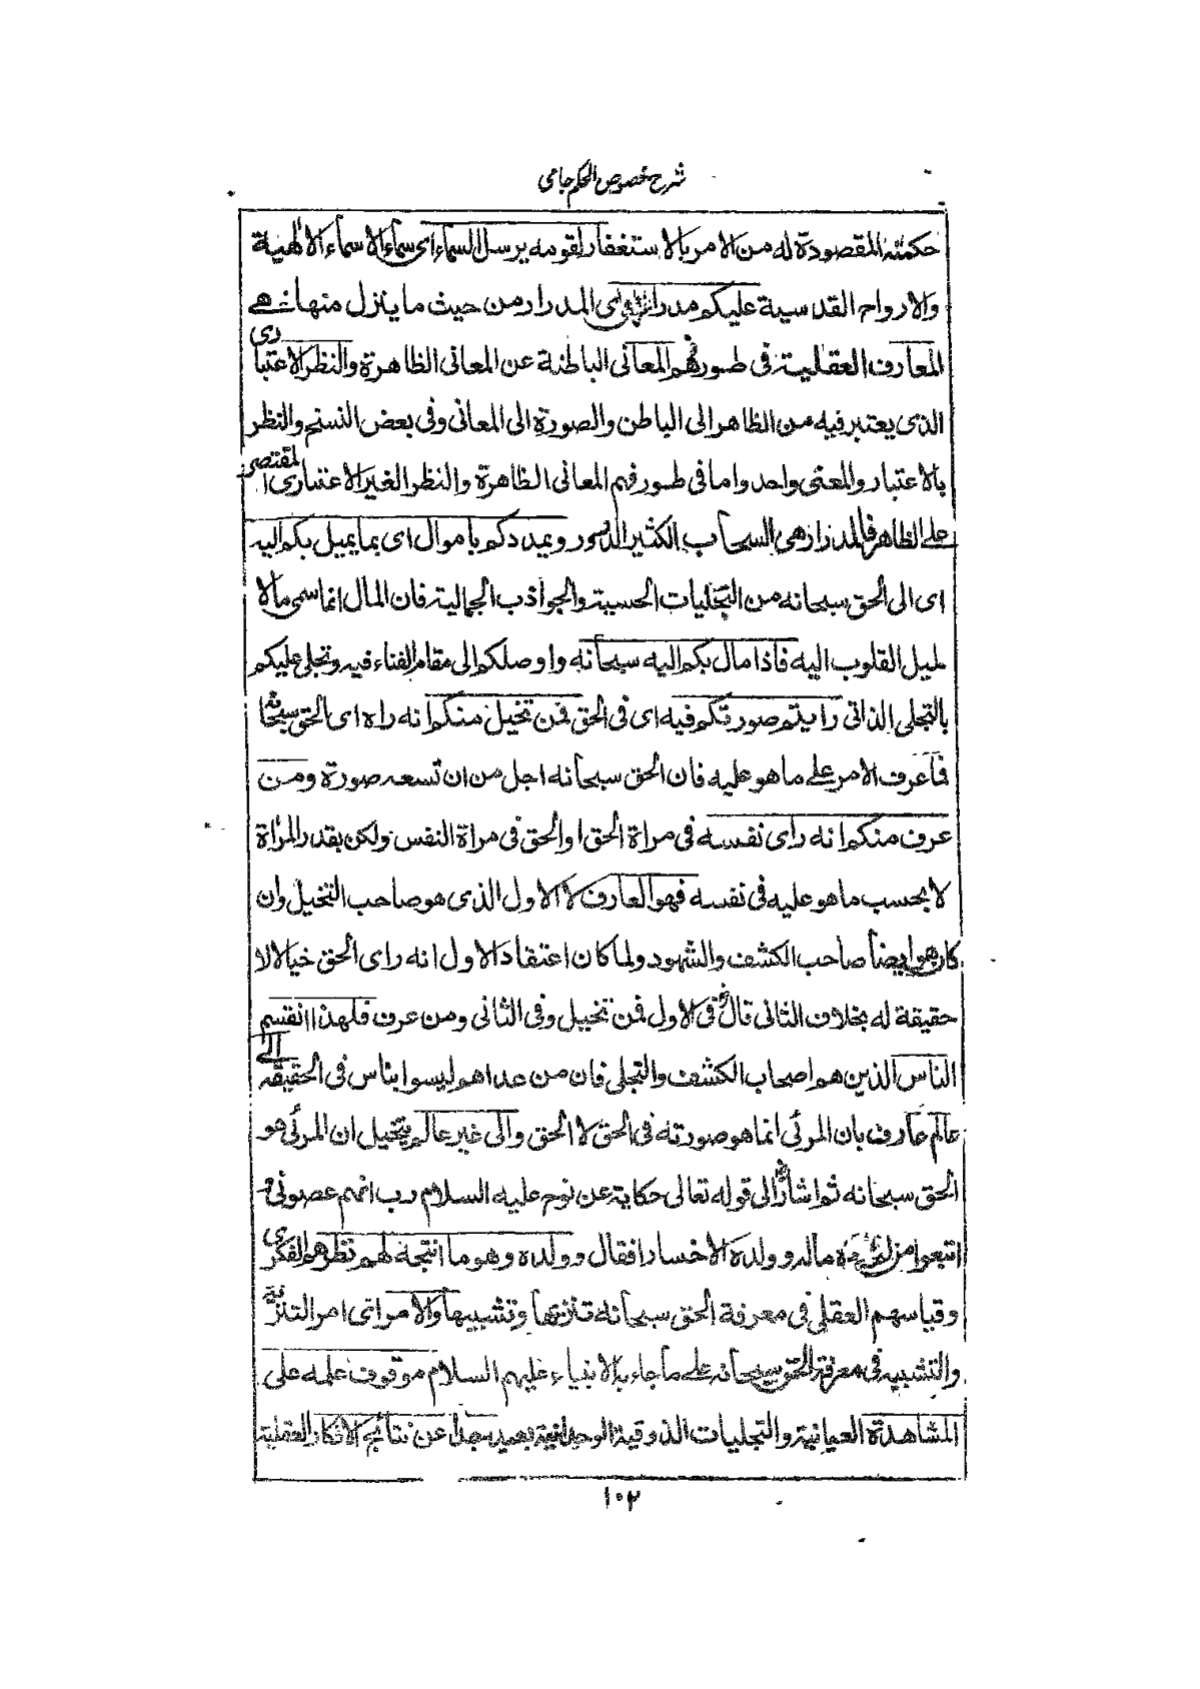 شرح فصوص الحكم جامى
حكمته المقصودة له من الامر بالاستغفار لقومه يرسل السماء اى سماء الاسماء الالهية
والارواح القدسية عليكم مدرارا اى المدرار من حيث ما ينزل منها هے
المعارف العقلية فى طور فهم المعانى الباطنة عن المعانى الظاهرة والنظر الاعتبارى
الذى يعتبر فيه من الظاهر الى الباطن والصورة الى المعانى وفى بعض النسخ والنظر
بالاعتبار والمعنى واحد واما فى طور فهم المعانى الظاهرة والنظر الغير الاعتبارى المقتصر
علے الظاهر فالمدرار هى السحاب الكثير الدرور ويمددكم باموال اى بما يميل بكم اليه
اى الى الحق سبحانه من التجليات الحسية والجواذب الجمالية فان المال انما سمى مالا
لميل القلوب اليه فاذا مال بكم اليه سبحانه واوصلكم الى مقام الفناء فيه وتجلى عليكم
بالتجلى الذاتى رايتم صورتكم فيه اى فى الحق فمن تخيل منكم انه راه اى الحق سبحانه
فما عرف الامر علے ما هو عليه فان الحق سبحانه اجل من ان تسعه صورة ومن
عرف منكم انه راى نفسه فى مراة الحق او الحق فى مراة النفس ولكن بقدر المراة
لا بحسب ما هو عليه فى نفسه فهو العارف لا الاول الذى هو صاحب التخيل وان
كان هو ايضا صاحب الكشف والشهود ولما كان اعتقاد الاول انه راى الحق خيالا لا
حقيقة له بخلاف الثانى قال فى الاول فمن تخيل وفى الثانى ومن عرف فلهذا انقسم
الناس الذين هم اصحاب الكشف والتجلى فان من عداهم ليسوا بناس فى الحقيقة الى
عالم عارف بان المرئى انما هو صورته فى الحق لا الحق والى غير عالم يتخيل ان المرئى هو
الحق سبحانه ثم اشار الى قوله تعالى حكاية عن نوح عليه السلام رب انهم عصونى و
اتبعوا من لم يزده ماله وولده الا خسارا فقال وولده وهو ما انتجه لهم نظرهم الفكرى
وقياسهم العقلى فى معرفة الحق سبحانه تنزيها وتشبيها والامر اى امر التنزيه
والتشبيه فى معرفة الحق سبحانه علے ما جاء به الانبياء عليهم السلام موقوف علمه على
المشاهدة العيانية والتجليات الذوقية الوجدانية بعيد عن نتائج الافكار العقلية
١٠٢